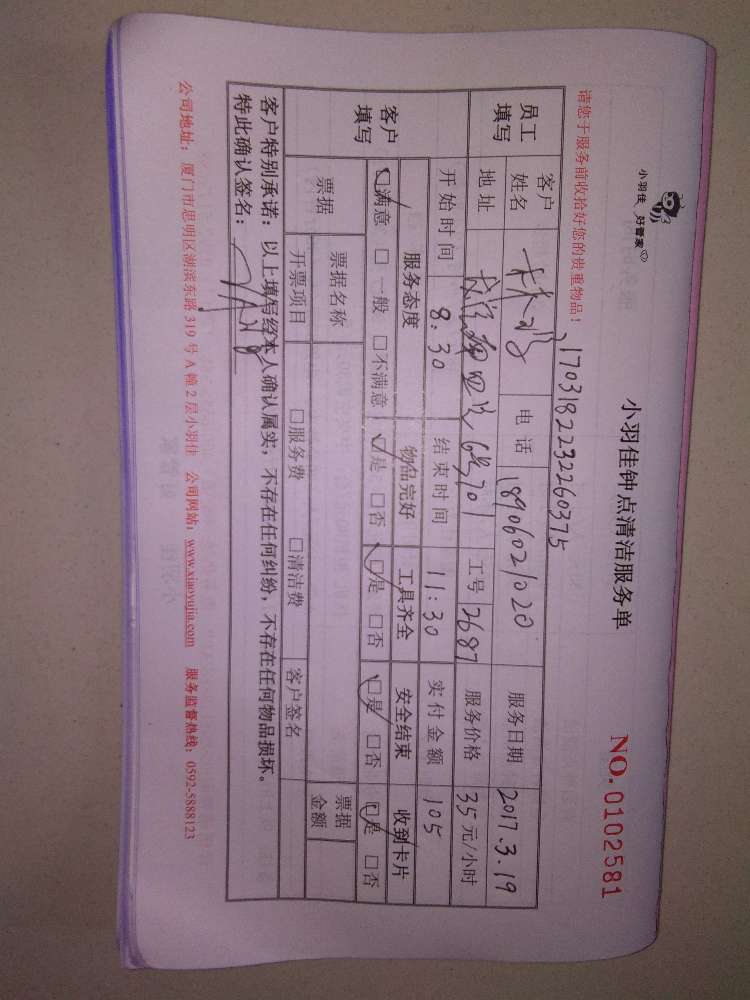 小羽佳 好管家
小羽佳钟点清洁服务单
NO.0102581
请您于服务前收拾好您的贵重物品！
1703182232260375
员工填写 客户姓名 电话 18906021020 服务日期 2017.3.19
地址 6号701 工号 2687 服务价格 35元/小时
开始时间 8:30 结束时间 11:30 实付金额 105
客户填写 服务态度 物品完好 工具齐全 安全结束 收到卡片
☑满意 □一般 □不满意 ☑是 □否 ☑是 □否 ☑是 □否 ☑是 □否
票据 票据名称 票据金额
开票项目 □服务费 □清洁费 客户签名
客户特别承诺：以上填写经本人确认属实，不存在任何纠纷，不存在任何物品损坏。
特此确认签名：
公司地址：厦门市思明区湖滨东路319号A幢2层小羽佳 公司网站：www.xiaoyujia.com 服务监督热线：0592-5888123